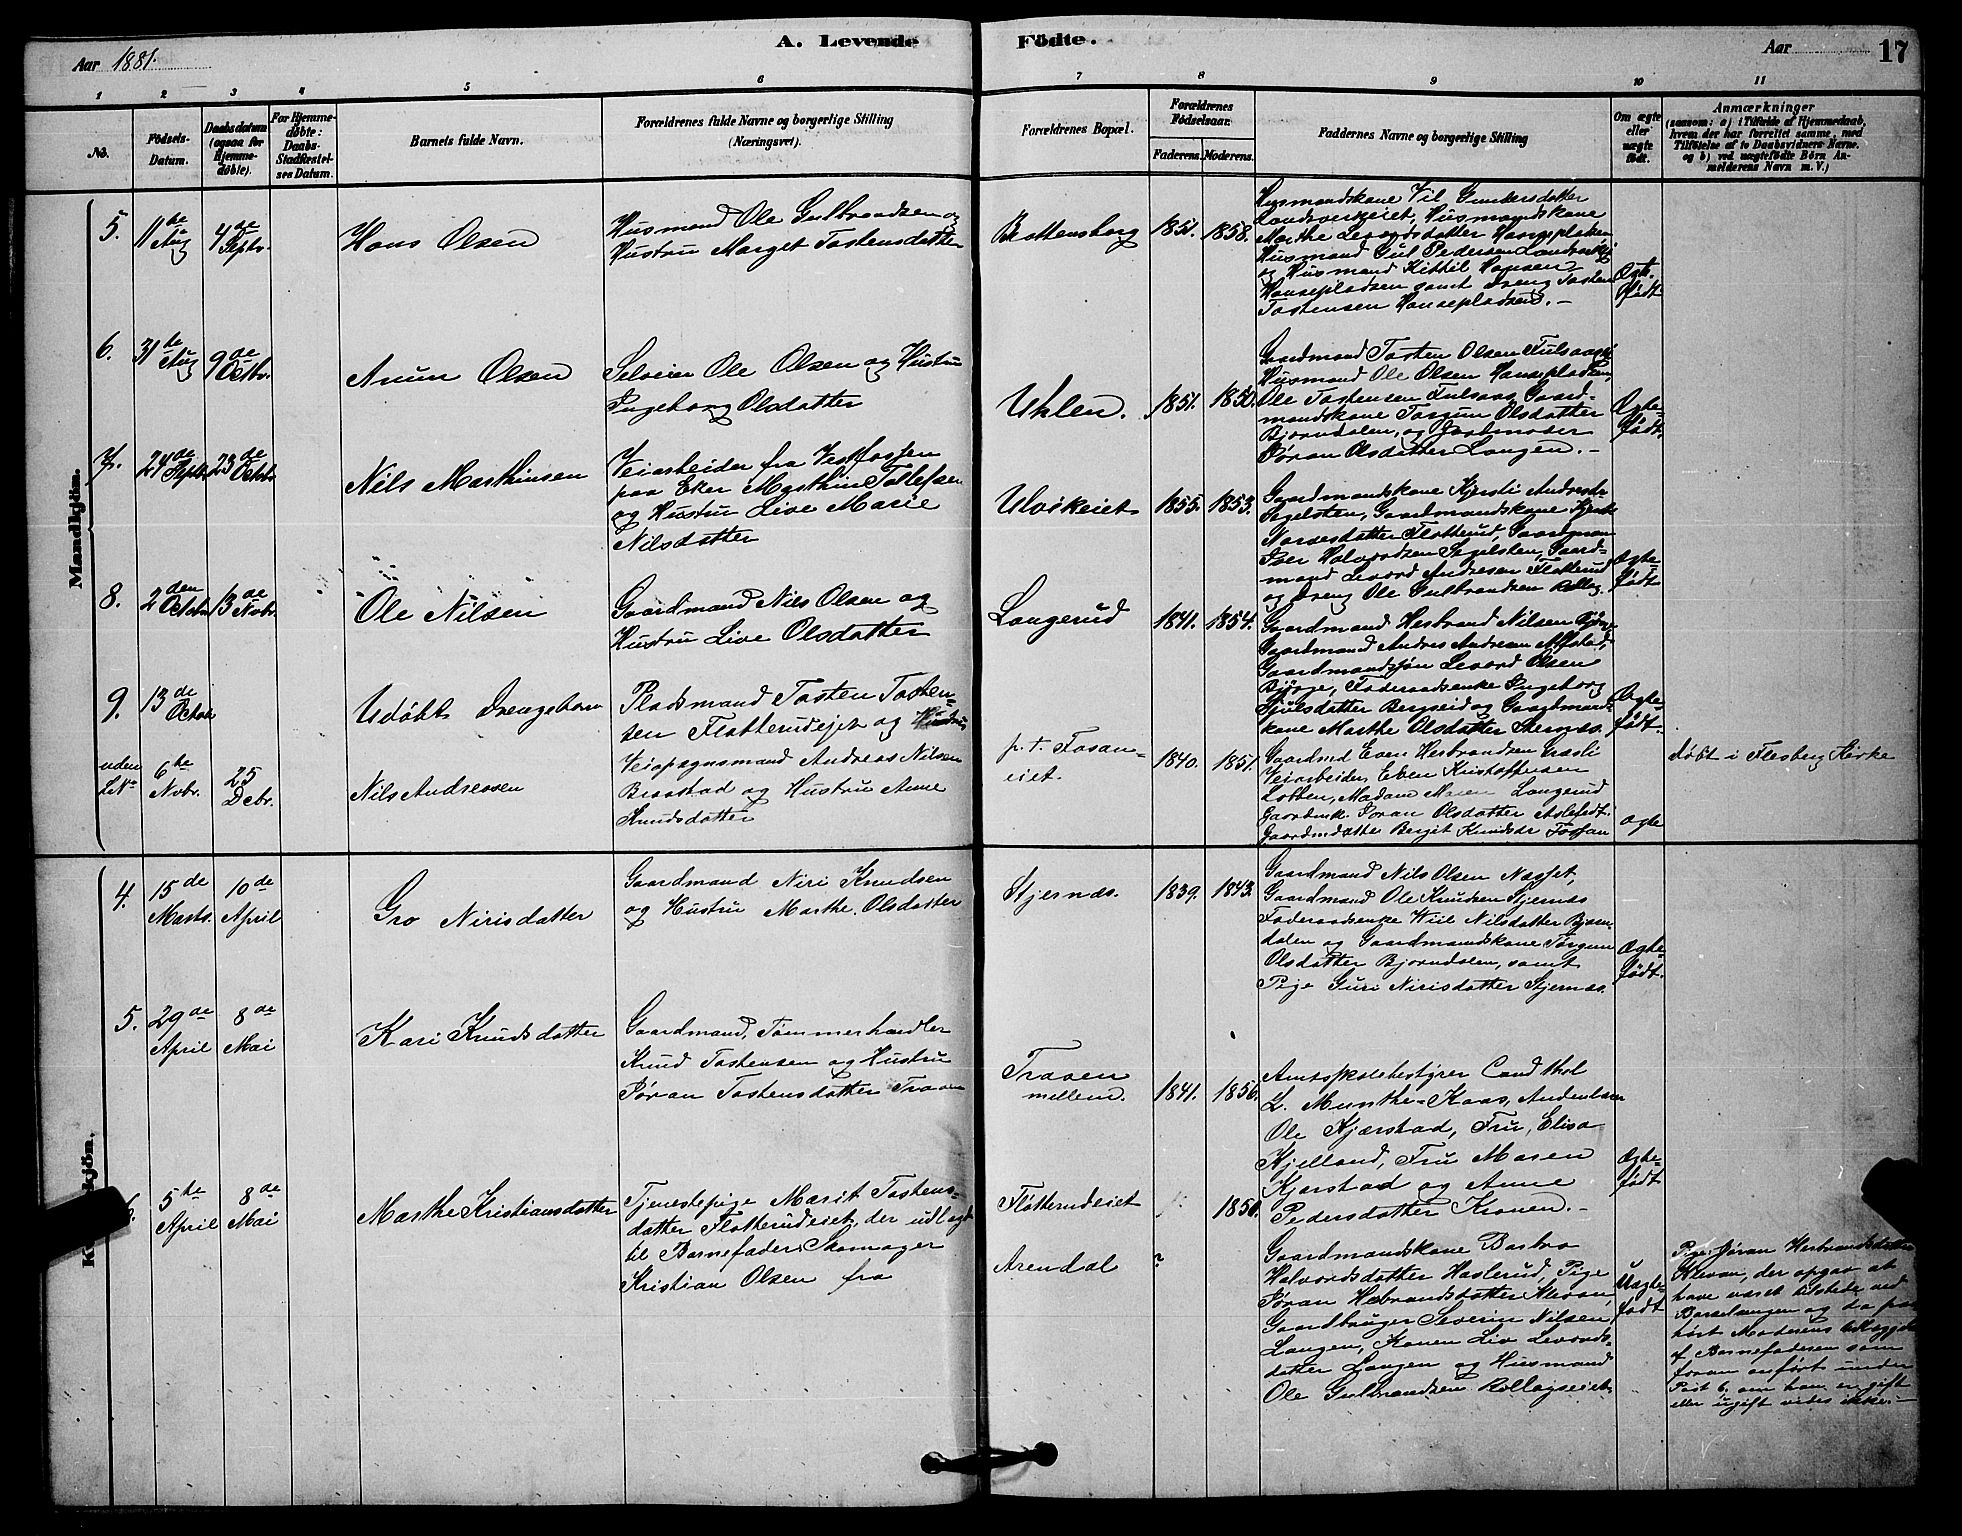 A. Levende Födte.
Aar 1881.
Aar
17
1 2 3 4 5 6 7 8 9 10 11
No.
Födsels-Datum.
Daabsdatum (ogsaa for Hjemme-døbte).
For Hjemme-døbte: Daabs-Stadfæstel-ses Datum.
Barnets fulde Navn.
Forældrenes fulde Navne og borgerlige Stilling
(Næringsvei).
Forældrenes Bopæl.
Forældrenes Födselsaar.
Faderens. Moderens.
Faddernes Navne og borgerlige Stilling
Om ægte eller uægte født.
Anmærkninger
(saasom: a) i Tilfælde af Hjemmedaab,
hvem der har forrettet samme, med
Tilføielse af to Daabsvidners Navne.
og b) ved uægtefødte Børn An-
melderens Navn m. V.)
Mandkjön.
5. 11te Aug 4de Septr.
Hans Olsen
Husmand Ole Gulbrandsen og
Hustru Marget Tostensdatter
1851. 1858.
Husmandskone Vil Gundersdatter
Landsverkeiet, Husmandskone
Marthe Levordsdatter Hansepladsen
Husmand Gul Pedersen
og Husmand Kittil Hansen
Hansepladsen samt Dreng Tosten
Tostensen Hansepladsen. –
Ægte-
født
6. 31te Aug 9de Octbr.
Anun Olsen
Selveier Ole Olsen og Hustru
Ingeborg Olsdatter
Uhlen.
1851. 1850.
Gaardmand Tosten Olsen Fulsaas
Husmand Ole Olsen Hansepladsen,
Ole Tostensen Fulsaas Gaard-
mandskone Torgun Olsdatter
Bjørndalen, og Jordmoder
Jøran Olsdatter Langen. –
Ægte-
født.
7. 24de Septbr 23de Octbr.
Nils Marthinsen
Veiarbeider fra Vestfossen
paa Eker Marthin Tollefsen
og Hustru Live Marie
Nilsdatter
Ulvikeiet
1855. 1853.
Gaardmandskone Kjersti Andersdr.
Segelsten, Gaardmandskone
Narvesdatter Flatterud, Gaardman
Iver Halvordsen Segelsten, Gaard-
mand Levord Andersen Flatterud
og Dreng Ole Gulbrandsen Rollag.
Ægte-
født
8. 2den Octobr 13de Novbr.
Ole Nilsen
Gaardmand Nils Olsen og
Hustru Live Olsdatter
Langerud
1841. 1854.
Gaardmand Herbrand Nilsen
Gaardmand Andres Andresen
Gaardmandssøn Levord Olsen
Bjørge, Føderaadsenke Ingeborg
Gjulsdatter Bergseid og Gaardmands-
kone Marthe Olsdatter Stjernes.
Ægte-
født.
9. 13de Octob
Udøbt Drengebarn
Pladsmand Tosten Tosten-
sen Flatterudejet og Hustru
uden LNo 6te Nvbr. 25 Debr.
Nils Andreasen
Veiopsynsmand Andreas Nilsen
Braastad og Hustru Anne
Knudsdatter
p. t. Fosan-
eiet.
1840. 1851.
Gaardmd Even Herbrandsen
Veiarbeider Even Kristoffersen
Lobben, Madam Maren Langerud
Gaardenk. Jøran Olsdatter
Gaardmdatter Bergit Knudsdr Fossan
ægte
døbt i Flesberg Kirke
Kvindekjön.
4. 15de Marts. 10de April
Gro Nirisdatter
Gaardmand Niri Knudsen
og Hustru Marthe Olsdatter
Stjernes.
1839. 1843.
Gaardmand Nils Olsen Næset,
Gaardmand Ole Knudsen Stjernes
Føderaadsenke Wiil Nilsdatter Bjørn-
dalen og Gaardmandskone Torgun
Olsdatter Bjørndalen, samt
Pige Guri Nirisdatter Stjernes.
Ægte-
født.
5. 29de April 8de Mai
Kari Knudsdatter
Gaardmand, Tømmerhandler
Knud Tostensen og Hustru
Jøran Tostensdatter Traaen
Traaen
mellem.
1841. 1856.
Amtsskolebestyrer Cand theol
L. Munthe-Kaas, Andenlærer
Ole Kjærstad, Fru Elisa
Kjelland, Fru Maren
Kjærstad og Anne
Pedersdatter Kronen. –
Ægte-
født
6. 5te April 8de Mai
Marthe Kristiansdatter
Tjenestepige Marit Tostens-
datter Flatterudeiet, der udlagde
til Barnefader: Skomager
Kristian Olsen fra
Flotterudeiet
Arendal
? 1850.
Gaardmandskone Barbro
Halvordsdatter Haslerud, Pige
Jøran Herbrandsdatter Klevan,
Gaardbruger Severin Nilsen
Langen, Konen Liv Levords-
datter Langen og Husmand
Ole Gulbrandsen Rollagseiet
Uægte-
født
Pige Jøran Herbrandsdatter
Klevan, der opgav at
have været tilstede ved
Barselsengen og da paa-
hørt Moderens Udlæggelse
af Barnefaderen som
foran anført under
Post 6. om han er gift
eller ugift vides ikke. –